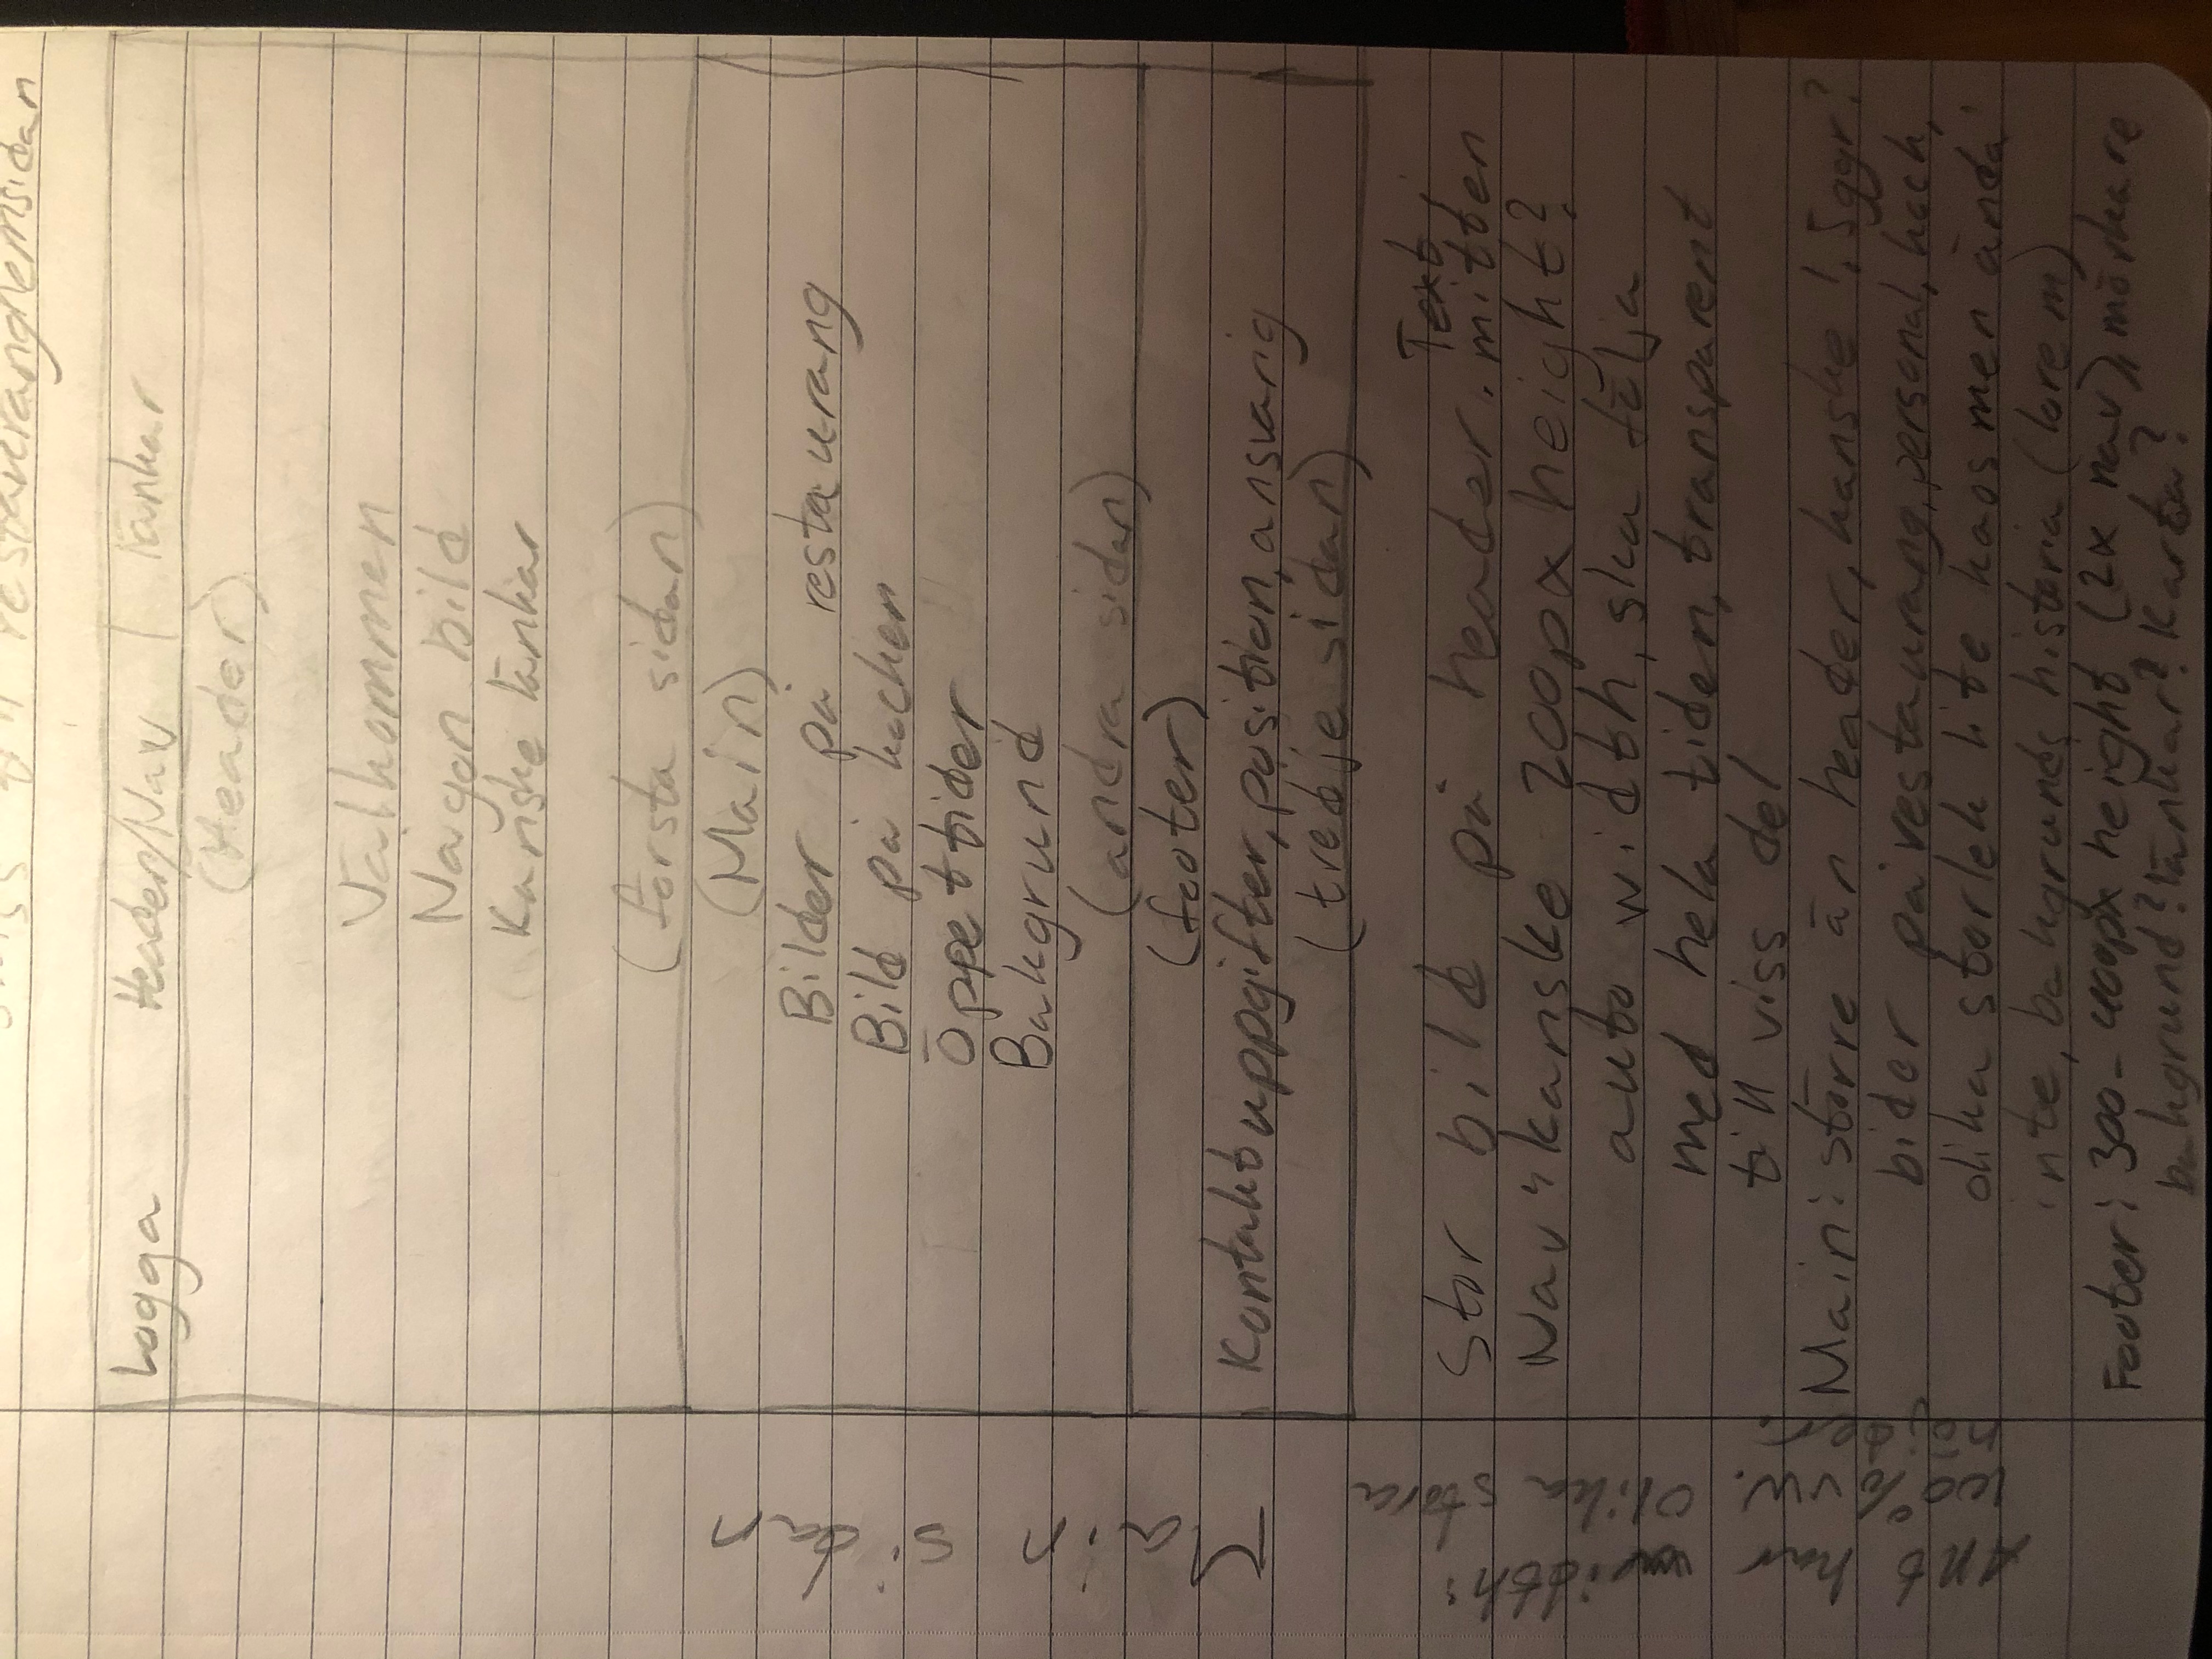 till restauranghemsidan
Logga Header/Nav | länkar
(Header)
Välkommen
Någon bild
Kanske länkar
(första sidan)
(Main)
Bilder på restaurang
Bild på kocken
Öppettider
Bakgrund
(andra sidan)
(footer)
Kontaktuppgifter, position, ansvarig
(tredje sidan)
Main sidan
Stor bild på header. Text i mitten
Nav: kanske 200px height?
auto width, ska följa
med hela tiden, transparent
till viss del
Main: större än header, kanske 1.5ggr?
bider på restaurang, personal, kock,
olika storlek lite kaos men ändå
inte, bakgrunds historia (lorem)
Footer: 300-400px height (2x nav), mörkare
bakgrund? länkar? Karta?
Allt har width:
100% vw. Olika stora
höjder.